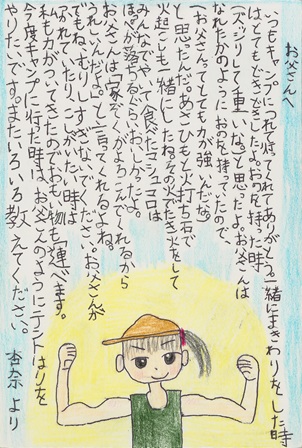 お父さんへ
いつもキャンプにつれて行ってくれてありがとう。一緒にまきわりをした時
はとてもどきどきしたよ。おのを持った時、
「ズッシリして重いな。」と思ったよ。お父さんは
なれたかのようにおのを持っていたので、
「お父さんってとても力が強いんだな。」
と思ったんだ。あさひもと火打ち石で
火起こしも一緒にしたね。その火でたき火をして
みんなでやって食べたマシュマロは
ほっぺが落ちるぐらいおいしかったよ。
お父さんは「家ぞくがよろこんでくれるから
うれしいんだよ。」と言ってくれるよね。
でもね、むりしすぎないでください。お父さんが
つかれていたり、こしがいたい時は
私も力がついてきたのでおもい物も運べます。
今度キャンプに行った時は、お父さんのようにテントはりを
やりたいです。またいろいろ教えてください。
杏奈より